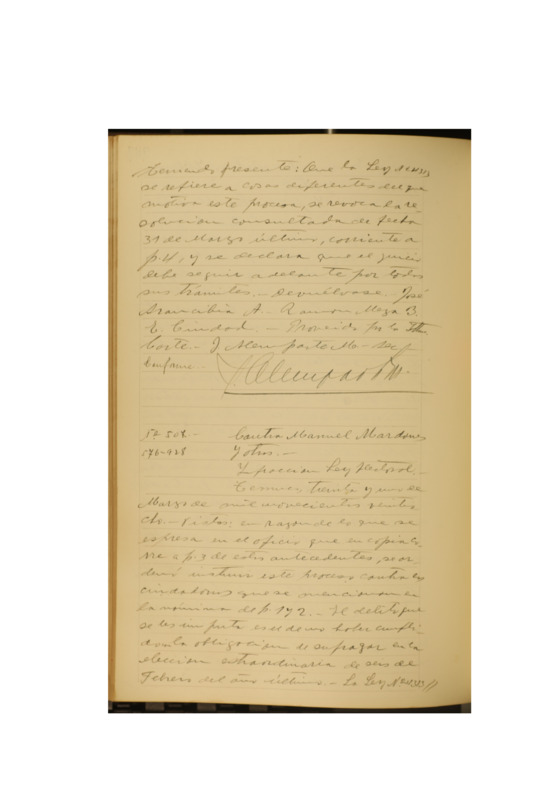 Teniendo presente: Que la Ley N°
se refiere a cosas diferentes en que
motiva este proceso, se revoca la re-
solucion consultada de fecha
31 de Marzo último, corriente a
f. 4, y se declara que el juicio
debe seguir adelante por todos
sus trámites.- Devuélvase. José
Arancibia A.- Ramon Meza B.
E. Ciudad.- Proveido por la Iltma
Corte.- J. Alemparte M.- Sec
Conforme.-
J. Alemparte M.
Contra Manuel Mardones
y otros.-
Infraccion Ley Electoral.-
Temuco, treinta y uno de
Marzo de mil novecientos veinti
cho.- Vistos: en razon de lo que se
espresa en el oficio que en copia co-
rre a f. 3 de estos antecedentes, se or-
denó instruir este proceso contra los
ciudadanos que se mencionan en
la nómina de f. 1 y 2.- El delito que
se les imputa es el de no haber cumpli-
do con la obligacion de sufragar en la
eleccion estraordinaria de seis de
Febrero del año último.- La Ley N°